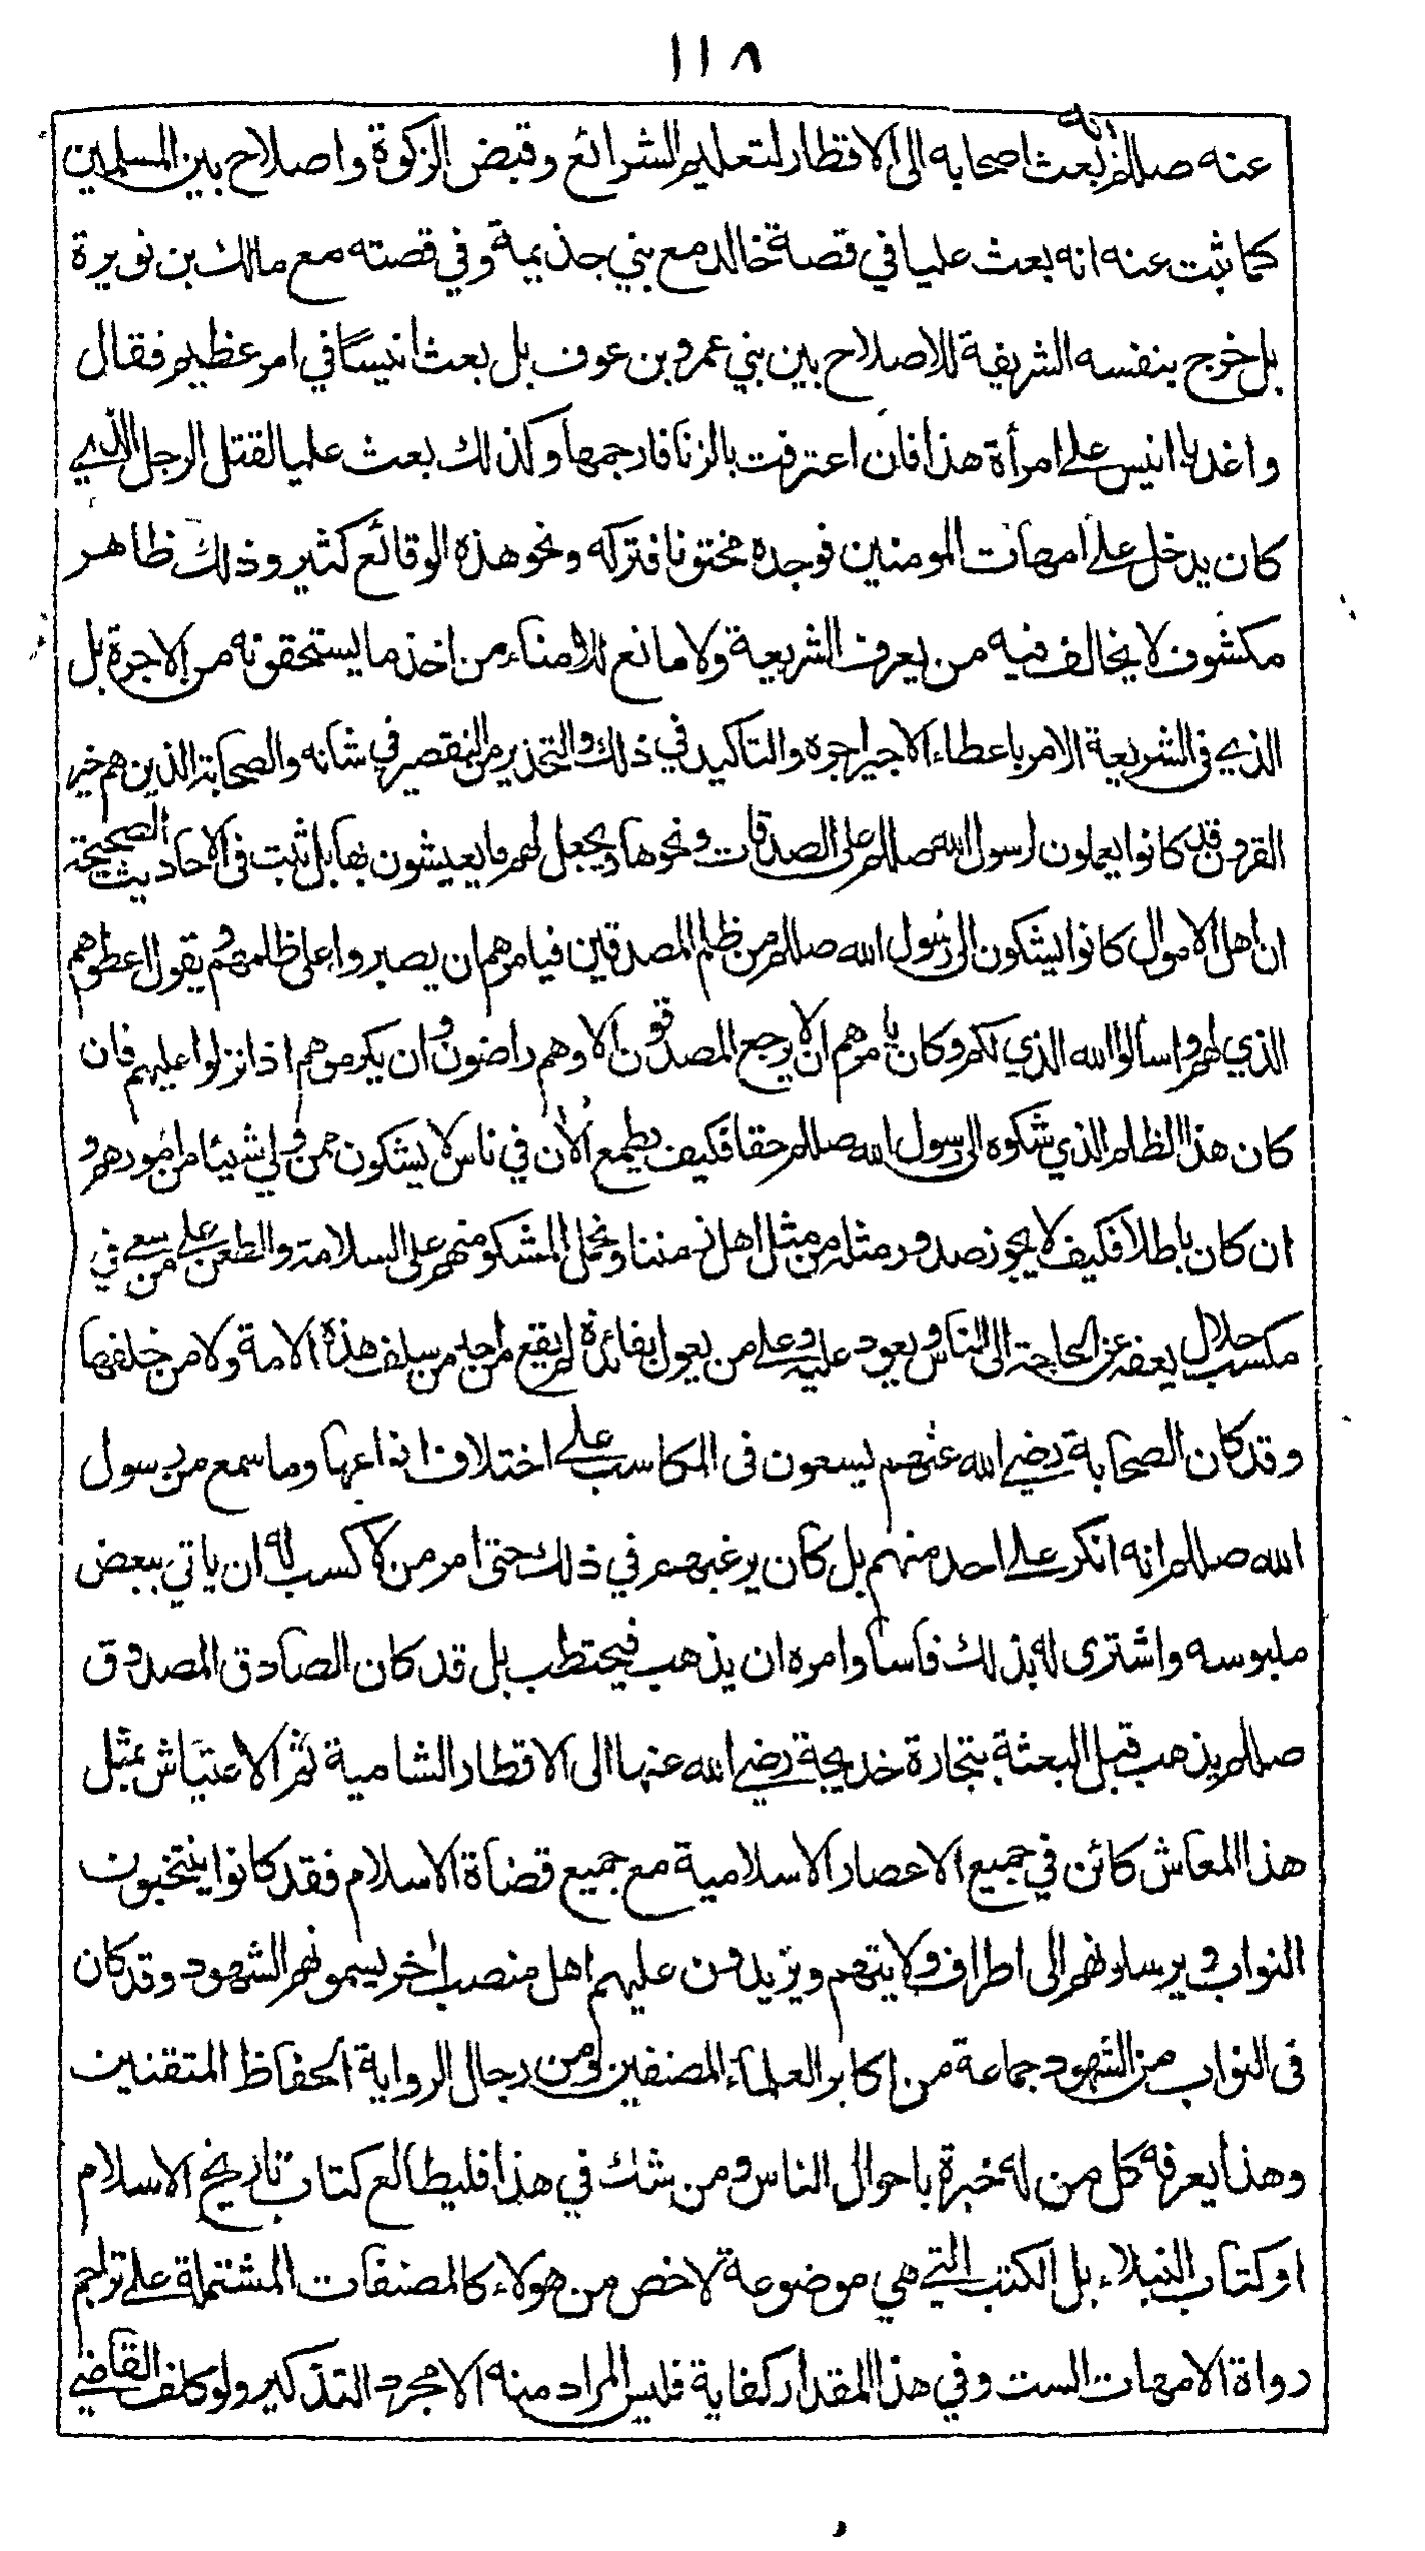 ١١٨
عنه صللم انه بعث اصحابه الى الاقطار لتعليم الشرائع وقبض الزكوة واصلاح بين المسلمين
كما ثبت عنه انه بعث عليا في قصة خالد مع بني جذيمة وفي قصته مع مالك بن نويرة
بل خرج بنفسه الشريفة للاصلاح بين بني عمرو بن عوف بل بعث انيسا في امر عظيم فقال
واغد يا انيس على امرأة هذا فان اعترفت بالزنا فارجمها وكذلك بعث عليا لقتل الرجل الذي
كان يدخل على امهات المومنين فوجده مختونا فتركه ونحو هذه الوقائع كثير وذلك ظاهر
مكشوف لا يخالف فيه من يعرف الشريعة ولا مانع للامناء من اخذ ما يستحقونه من الاجرة بل
الذي فى الشريعة الامر باعطاء الاجير اجره والتاكيد في ذلك والتحذير من التقصير في شانه والصحابة الذين هم خير
القرون قد كانوا يعملون لرسول الله صللم على الصدقات ونحوها ويجعل لهم ما يعيشون بها بل ثبت فى الاحاديث الصحيحة
ان اهل الاموال كانوا يشكون الى رسول الله صللم من ظلم المصدقين فيامرهم ان يصبروا على ظلمهم ويقول اعطوهم
الذي لهم واسالوا الله الذي لكم وكان يامرهم ان لا يرجع المصدقون الا وهم راضون وان يكرموهم اذا نزلوا عليهم فان
كان هذا الظلم الذي شكوه الى رسول الله صللم حقا فكيف يطمع الان في ناس لا يشكون ممن ولي شيئا من امورهم و
ان كان باطلا فكيف لا يجوز صدور مثله من مثل اهل زمننا ونحمل المشكو منهم على السلامة والطعن على من سعى في
مكسب حلال يعفه عن الحاجة الى الناس ويعود عليه وعلى من يعول بفائدة لم يقع من احد من سلف هذه الامة ولا من خلفها
وقد كان الصحابة رضي الله عنهم يسعون فى المكاسب على اختلاف انواعها وما سمع من رسول
الله صللم انه انكر على احد منهم بل كان يرغبهم في ذلك حتى امر من لا كسب له ان ياتي ببعض
ملبوسه واشترى له بذلك فاسا وامره ان يذهب فيحتطب بل قد كان الصادق المصدوق
صللم يذهب قبل البعثة بتجارة خديجة رضي الله عنها الى الاقطار الشامية ثم الاعتياش بمثل
هذا المعاش كائن في جميع الاعصار الاسلامية مع جميع قضاة الاسلام فقد كانوا ينتخبون
النواب ويرسلونهم الى اطراف ولايتهم ويزيدون عليهم اهل منصب اخر يسمونهم الشهود وقد كان
فى النواب من الشهود جماعة من اكابر العلماء المصنفين ومن رجال الرواية الحفاظ المتقنين
وهذا يعرفه كل من له خبرة باحوال الناس ومن شك في هذا فليطالع كتاب تاريخ الاسلام
او كتاب النبلاء بل الكتب التي هي موضوعة لاخص من هولاء كالمصنفات المشتملة على تراجم
رواة الامهات الست وفي هذا المقدار كفاية فليس المراد منه الا مجرد التذكير ولو كلف القاضي